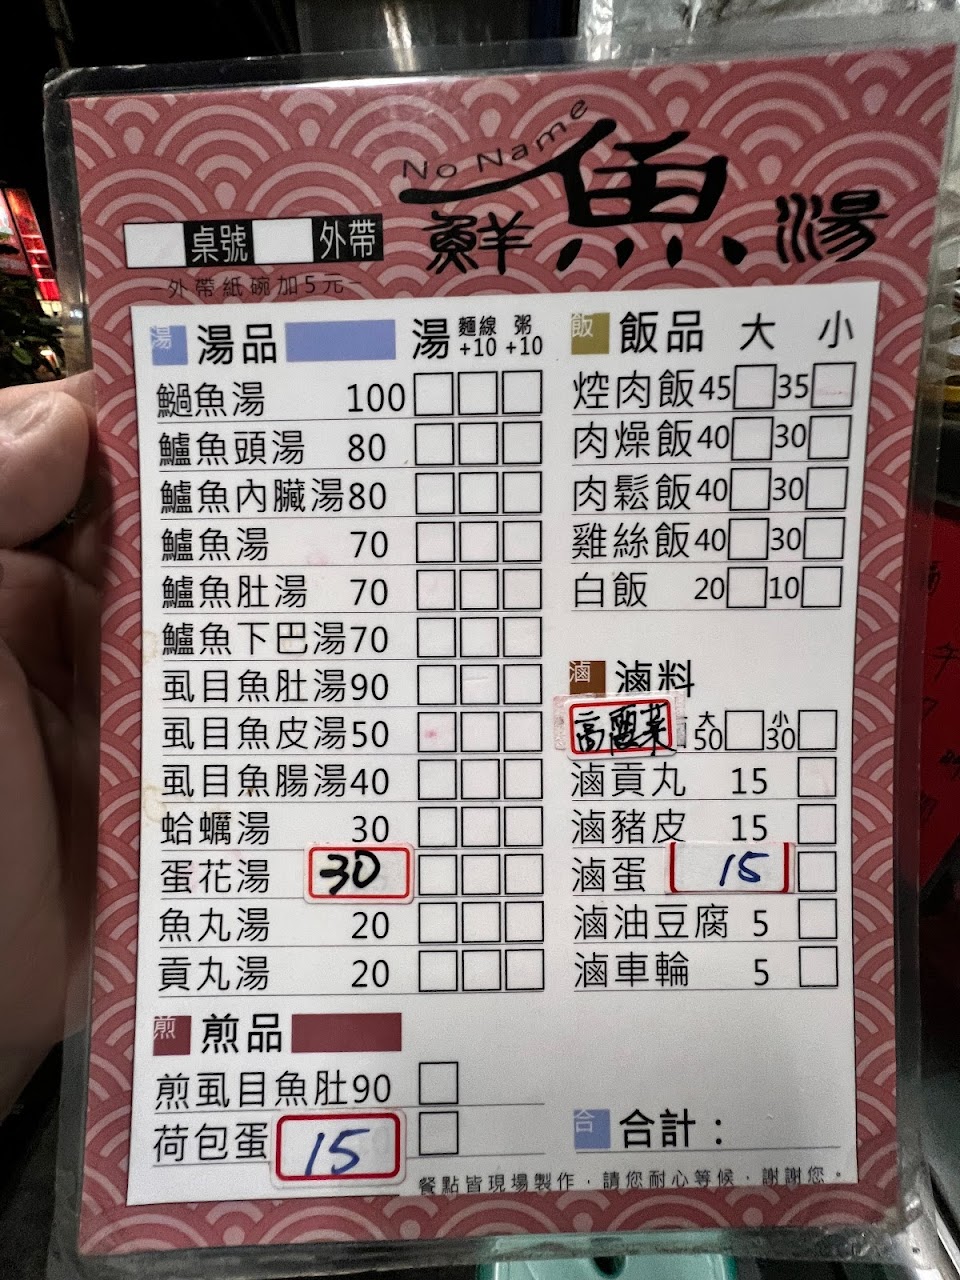 No Name
鮮魚湯
桌號 外帶
外帶紙碗加5元
湯 湯品 湯 麵線+10 粥+10
鱲魚湯 100
鱸魚頭湯 80
鱸魚內臟湯 80
鱸魚湯 70
鱸魚肚湯 70
鱸魚下巴湯 70
虱目魚肚湯 90
虱目魚皮湯 50
虱目魚腸湯 40
蛤蠣湯 30
蛋花湯 30
魚丸湯 20
貢丸湯 20
煎 煎品
煎虱目魚肚 90
荷包蛋 15
飯 飯品 大 小
焢肉飯 45 35
肉燥飯 40 30
肉鬆飯 40 30
雞絲飯 40 30
白飯 20 10
滷 滷料
高麗菜 大50 小30
滷貢丸 15
滷豬皮 15
滷蛋 15
滷油豆腐 5
滷車輪 5
合 合計：
餐點皆現場製作，請您耐心等候，謝謝您。